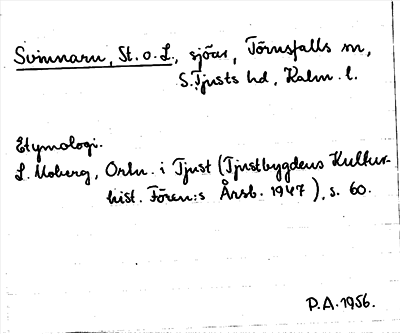 Svinnaru, St. o. L., sjöar, Törnsfalls sn,
S. Tjusts hd, Kalm. l.
Etymologi.
L. Moberg, Ortn. i Tjust (Tjustbygdens Kultur-
hist. Fören:s Årsb. 1947), s. 60.
P.A. 1956.